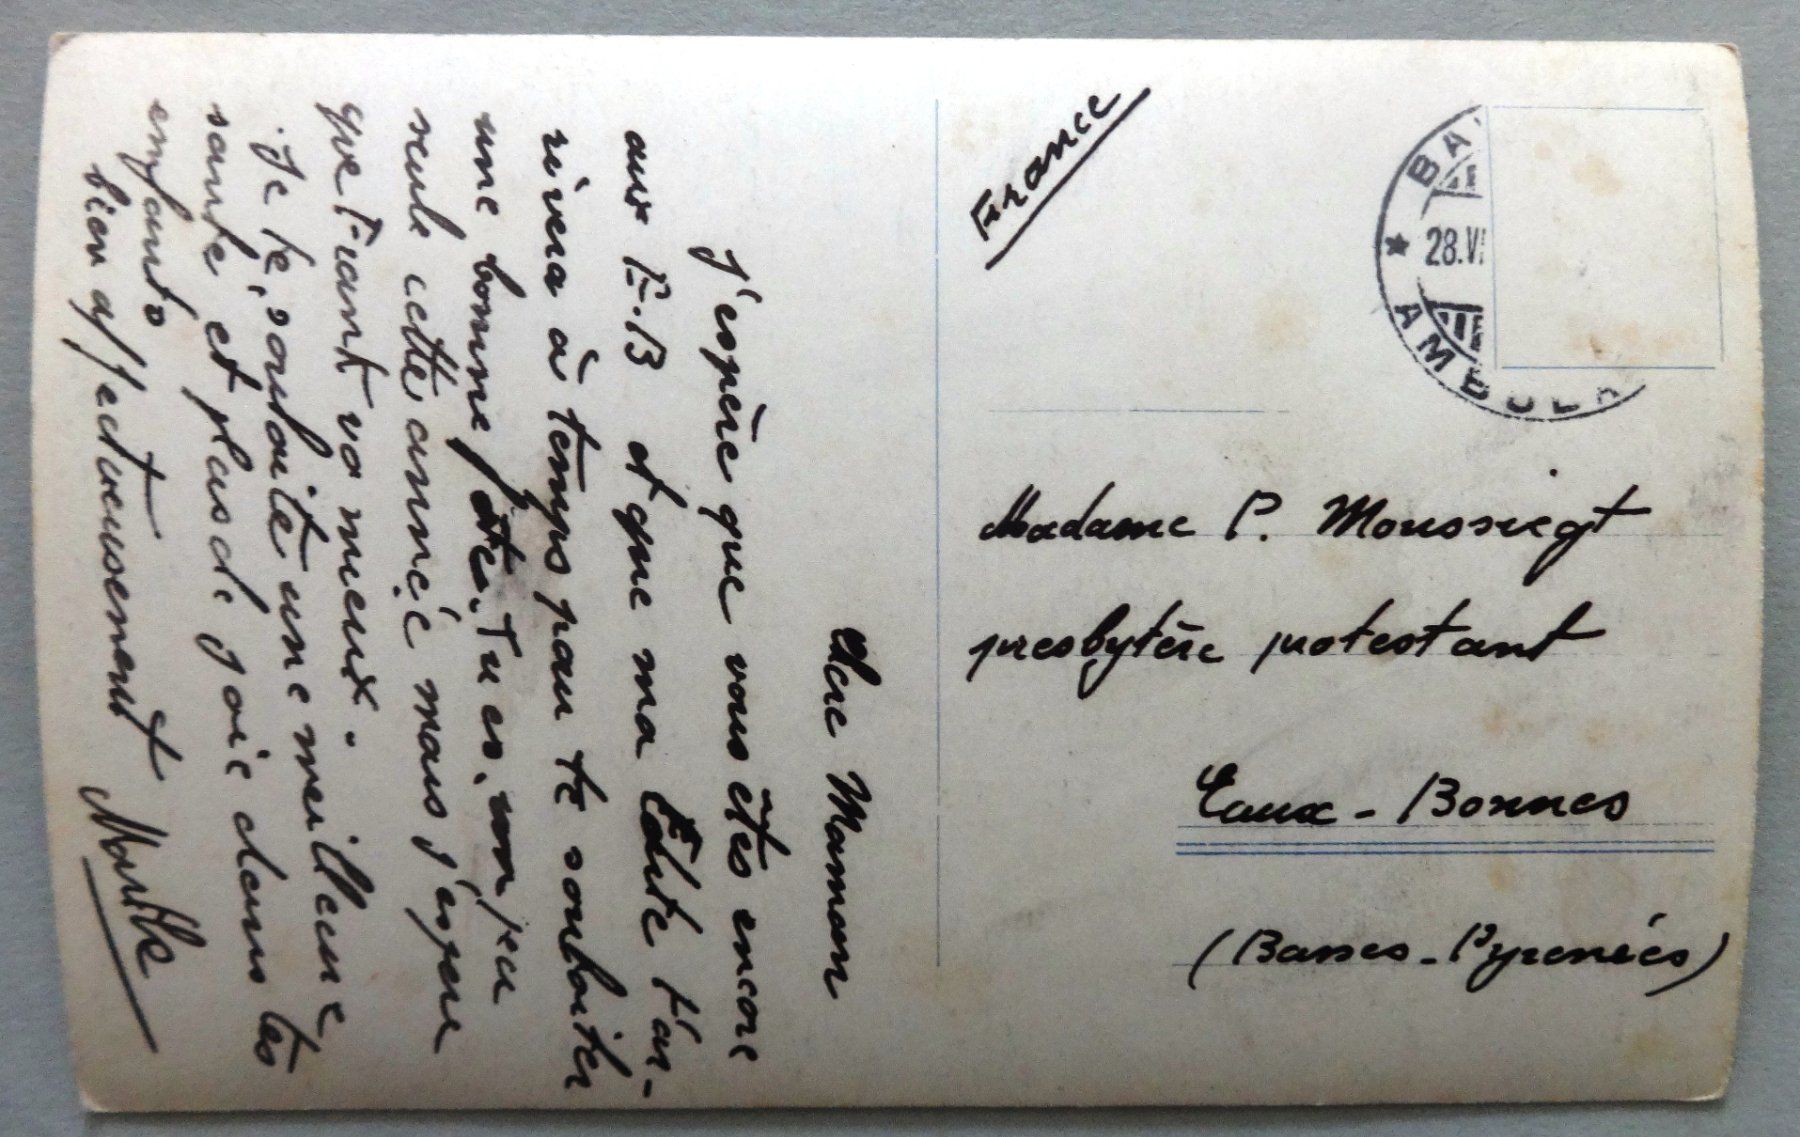 Chère Maman
J'espère que vous êtes encore
aux E-B et que ma carte t'ar-
rivera à temps pour te souhaiter
une bonne fête. Tu es un peu
seule cette année mais j'espère
que Frant va mieux.
Je te souhaite une meilleure
santé et plus de joie dans tes
enfants
bien affectueusement
France
28.VI
AMBULA
Madame P. Moussiegt
presbytère protestant
Eaux-Bonnes
(Basses-Pyrenées)